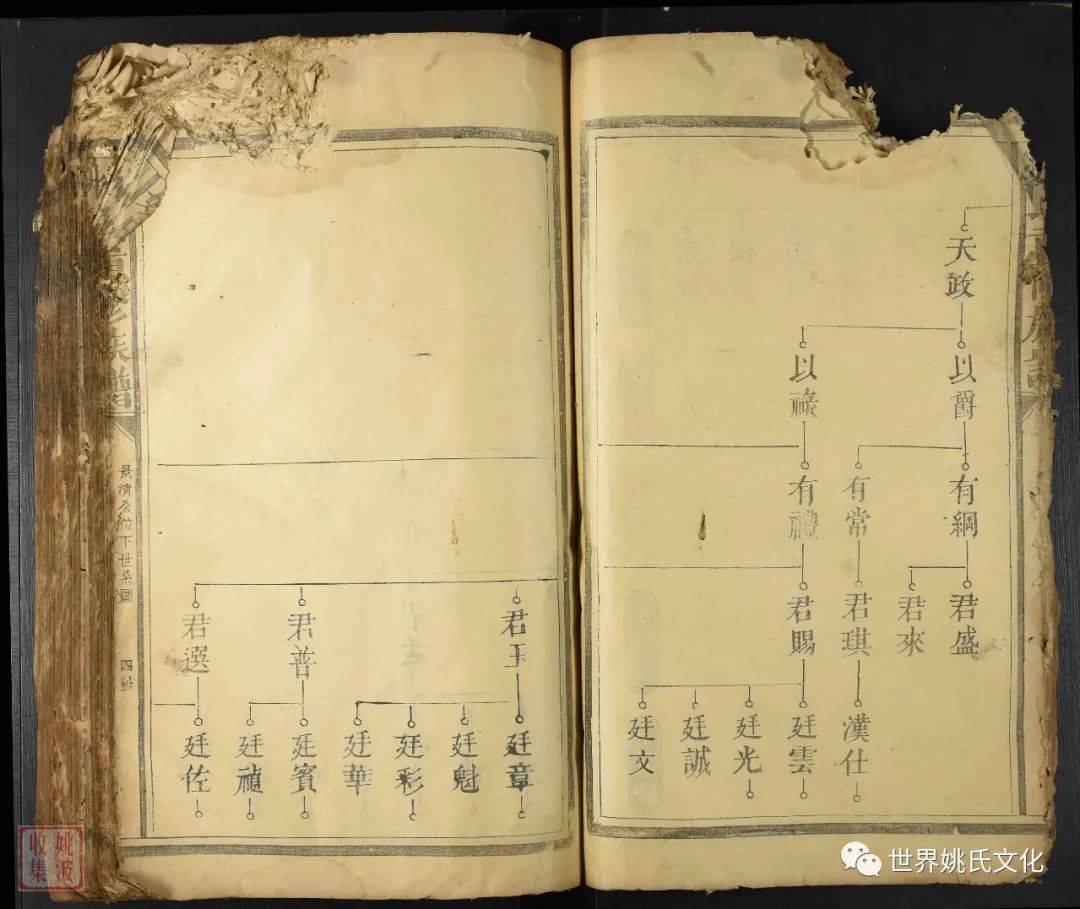 天政
以爵
以祿
有綱
有常
有禮
君盛
君來
君琪
君賜
漢仕
廷雲
廷光
廷誠
廷文
君玉
君普
君選
廷章
廷魁
廷彩
廷華
廷賓
廷禎
廷佐
族譜
景清公位下世系圖
姚波
收集
世界姚氏文化